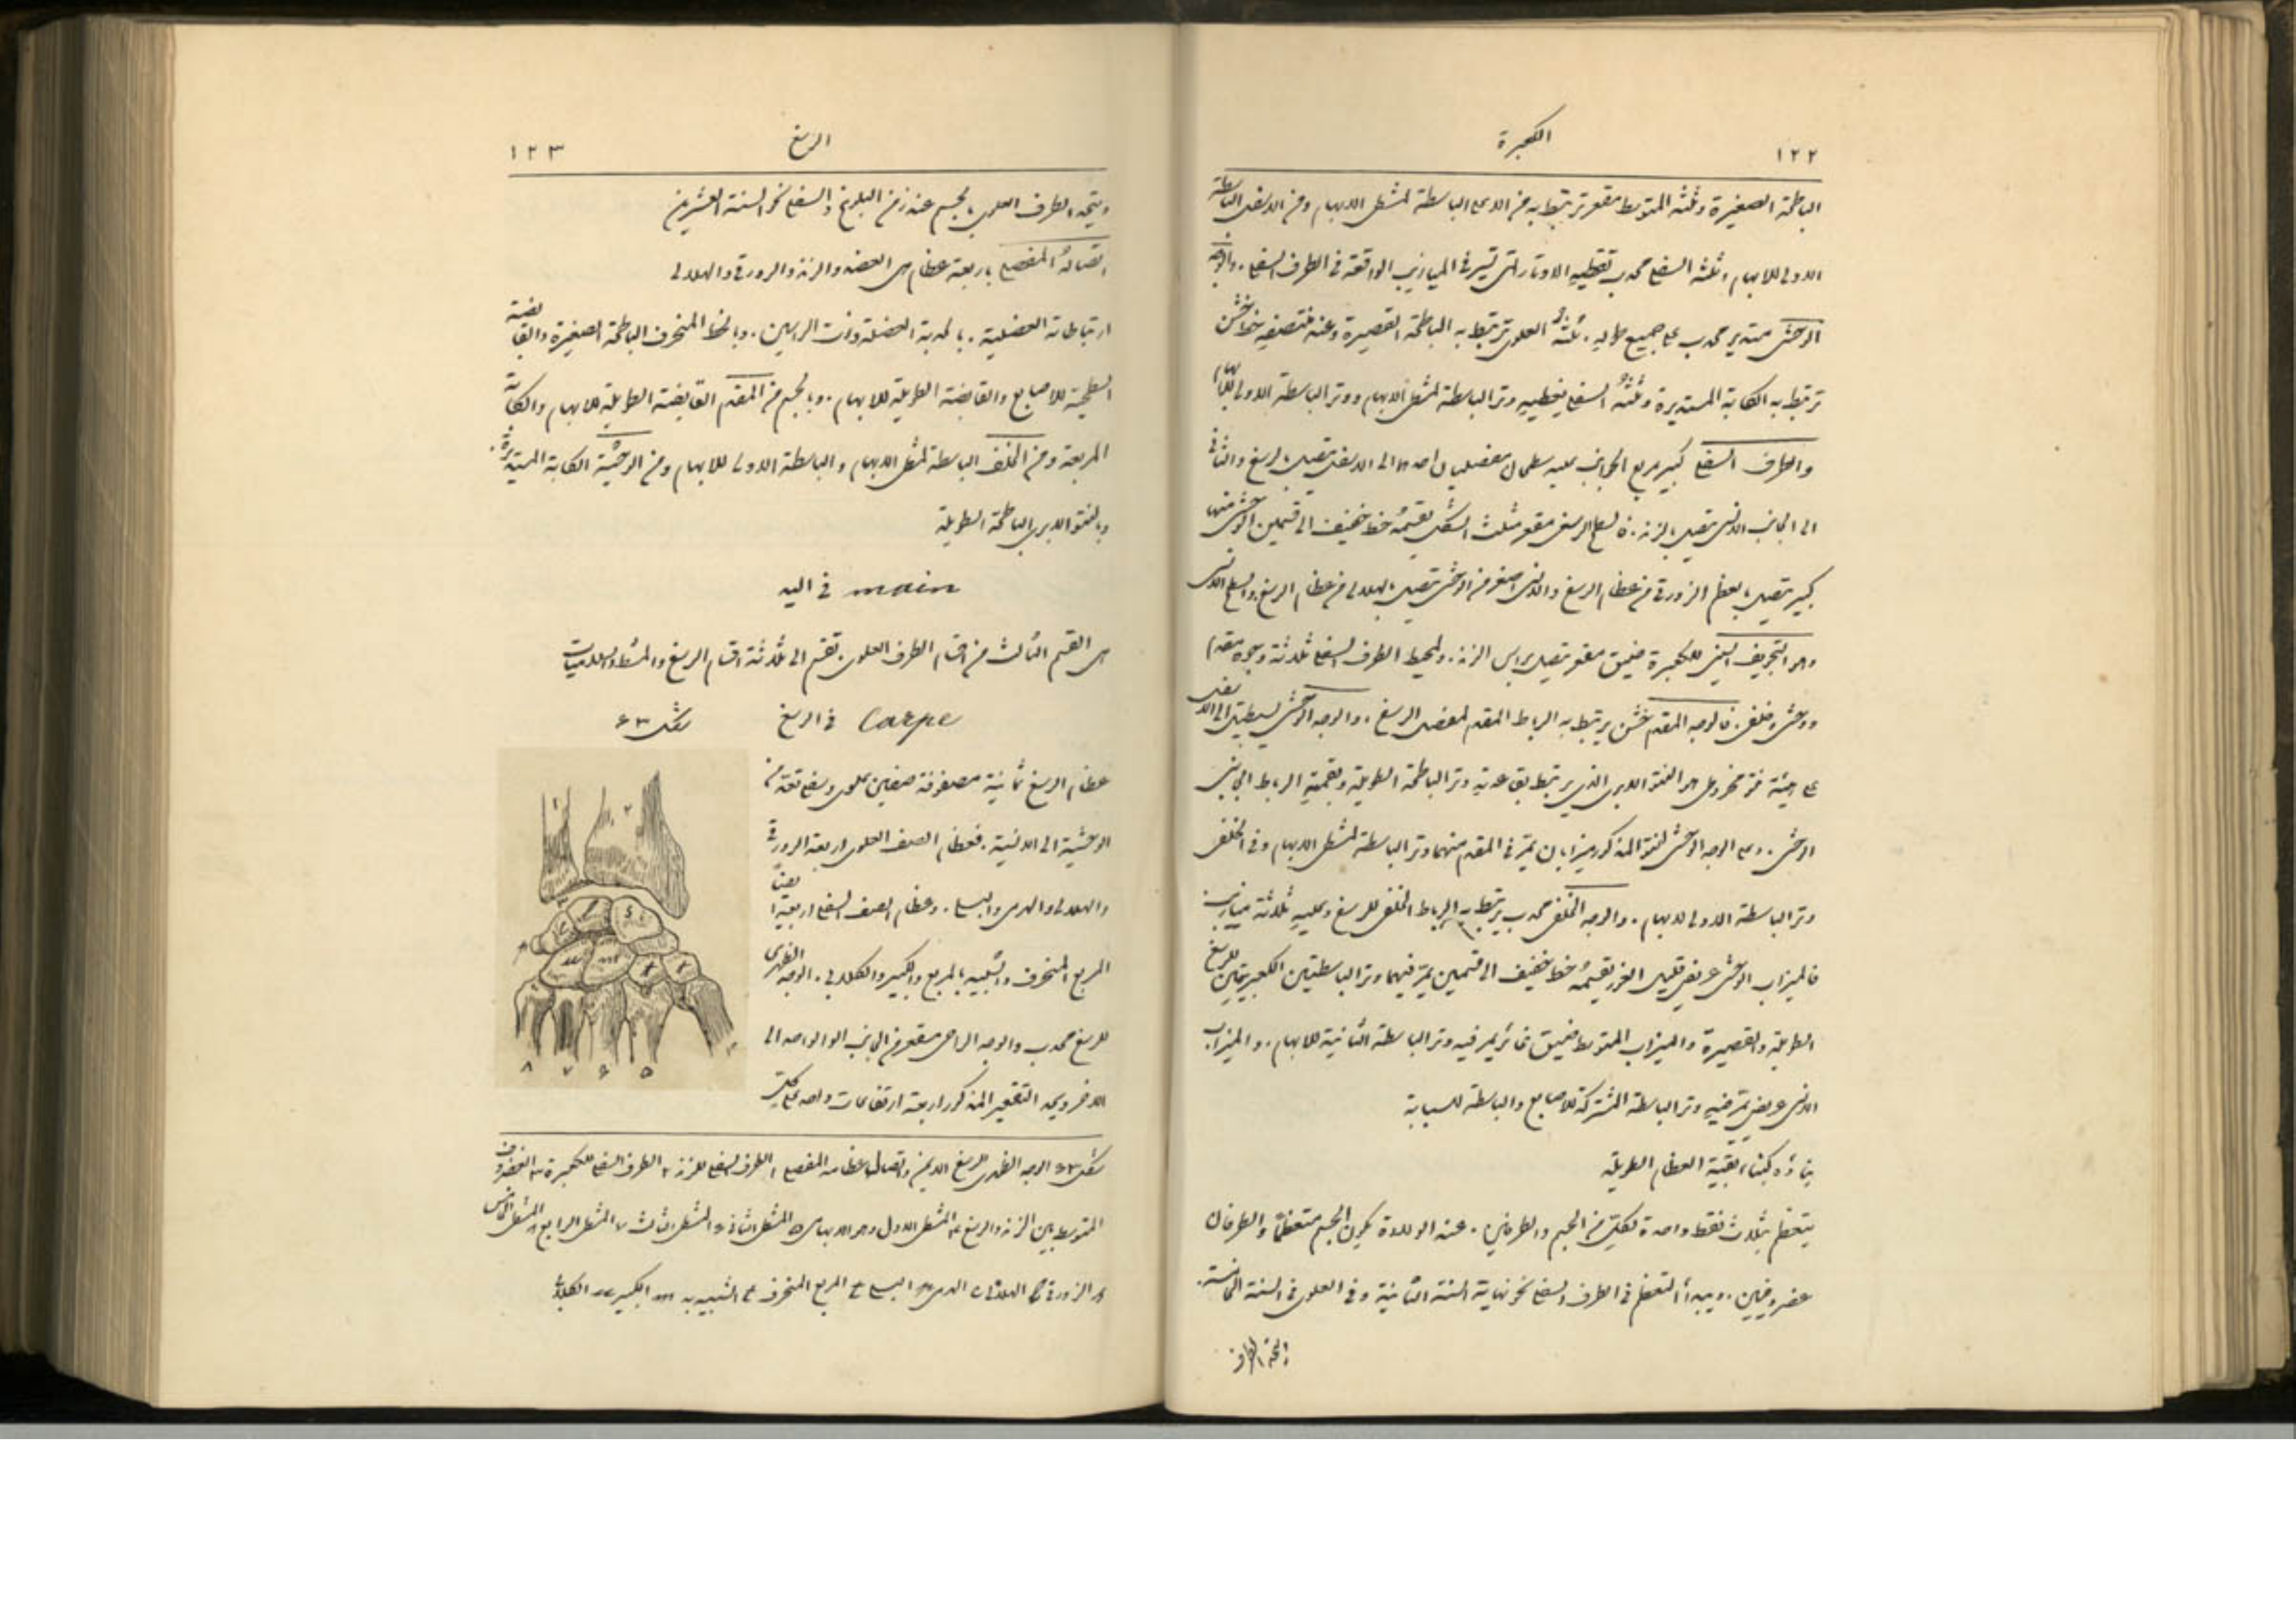 ١٢٢
الكعبرة
الباطحة الصغيرة وثلثه المتوسط مقعر ترتبط به من الاعلى الباسطة لمشط الابهام ومن الاسفل الباسطة
الاولى للابهام وثلثه السفلي محدب تغطيه الاوتار التي تسير في الميازيب الواقعة في الطرف السفلي. والوجه
الوحشي مستدير محدب على جميع طوله. ثلثه العلوي ترتبط به الباطحة القصيرة وعند منتصفه خط خشن
ترتبط به الكابة المستديرة وثلثه السفلي يغطيه وتر الباسطة لمشط الابهام ووتر الباسطة الاولى للابهام
والطرف السفلي كبير مربع الجوانب عليه سطحان مفصليان احدهما الى الاسفل يتصل بالرسغ والثاني
الى الجانب الانسي يتصل بالزند. فالسطح الرسغي مقعر مثلث الشكل يقسمه خط خفيف الى قسمين الوحشي منهما
كبير يتصل بالعظم الزورقي من عظام الرسغ والانسي اصغر من الوحشي يتصل بالهلالي من عظام الرسغ. والسطح الانسي
وهو التجويف السيني للكعبرة ضيق مقعر يتصل براس الزند. ولمحيط الطرف السفلي ثلاثة وجوه مقدم
ووحشي وخلفي. فالوجه المقدم خشن يرتبط به الرباط المقدم لمفصل الرسغ. والوجه الوحشي يستطيل الى الاسفل
على هيئة نتوء مخروطي هو النتوء الابري الذي يرتبط بقاعدته وتر الباطحة الطويلة وبقمته الرباط الجانبي
الوحشي. وعلى الوجه الوحشي للنتوء المذكور ميزابان يمر في المقدم منهما وتر الباسطة لمشط الابهام وفي الخلفي
وتر الباسطة الاولى للابهام. والوجه الخلفي محدب يرتبط به الرباط الخلفي للرسغ وعليه ثلاثة ميازيب
فالميزاب الوحشي عريض قليل الغور يقسمه خط خفيف الى قسمين يمر فيهما وتر الباسطتين الكعبريتين للرسغ
الطويلة والقصيرة والميزاب المتوسط ضيق غائر يمر فيه وتر الباسطة الثانية للابهام. والميزاب
الانسي عريض يمر فيه وتر الباسطة المشتركة للاصابع والباسطة للسبابة
بناؤه كبناء بقية العظام الطويلة
يتعظم بثلاث نقط واحدة لكل من الجسم والطرفين. عند الولادة يكون الجسم متعظمًا والطرفان
غضروفيين. ويبدأ التعظم في الطرف السفلي نحو نهاية السنة الثانية وفي العلوي في السنة الخامسة.
١٢٣
الرسغ
ويتحد الطرف العلوي بالجسم عند زمن البلوغ والسفلي نحو السنة العشرين
اتصاله المفصلي باربعة عظام هي العضد والزند والزورقي والهلالي
ارتباطاته العضلية. بالحدبة العضلة ذات الراسين. وبالخط المنحرف الباطحة الصغيرة والقابضة
السطحية للاصابع والقابضة الطويلة للابهام. وبالجسم من المقدم القابضة الطويلة للابهام والكابة
المربعة ومن الخلف الباسطة لمشط الابهام والباسطة الاولى للابهام ومن الوحشية الكابة المستديرة.
وبالنتوء الابري الباطحة الطويلة
main في اليد
هي القسم الثالث من اقسام الطرف العلوي. تقسم الى ثلاثة اقسام الرسغ والمشط والسلاميات
Carpe في الرسغ
شكل ٤٣
عظام الرسغ ثمانية مصفوفة صفين علوي وسفلي تعد من
الوحشية الى الانسية. فعظام الصف العلوي اربعة الزورقي
والهلالي والهرمي والبسلي. وعظام الصف السفلي اربعة ايضًا
المربع المنحرف والشبيه بالمربع والكبير والكلابي. الوجه الظهري
للرسغ محدب والوجه الراحي مقعر من الجانب الواحد الى
الاخر وعلى التقعير المذكور اربعة ارتفاعات واحد على كل
شكل ٤٣ الوجه الظهري للرسغ الايمن واتصال عظامه المفصلي ١ الطرف السفلي للزند ٢ الطرف السفلي للكعبرة ٣ الغضروف
المتوسط بين الزند والرسغ ٤ المشط الاول وهو الابهامي ٥ المشط الثاني ٦ المشط الثالث ٧ المشط الرابع ٨ المشط الخامس
الزورقي الهلالي الهرمي البسلي المربع المنحرف الشبيه به الكبير الكلابي